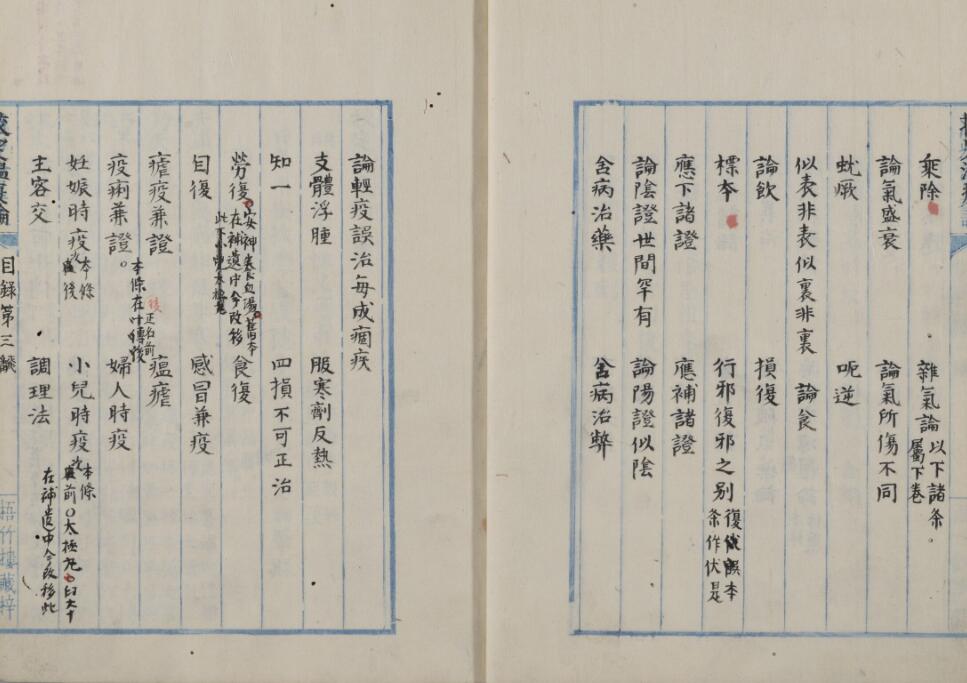 乘除 雜氣論以下諸条屬下卷。
論氣盛衰 論氣所傷不同
蚘厥 呃逆
似表非表似裏非裏 論食
論飲 損復
標本 行邪復邪之别復本条作伏是
應下諸證 應補諸證
論陰證世間罕有 論陽證似陰
舍病治藥 舍病治弊
論輕疫誤治每成痼疾
支體浮腫 服寒劑反熱
知一 四損不可正治
勞復 安神養血湯舊本在補遺中今改移 食復
自復 感冒兼疫
瘧疫兼證 瘟瘧
疫痢兼證。本條在 後 正名前 婦人時疫
妊娠時疫本條次 後 小兒時疫本條次 前〇太極丸 在補遺中今改移此
主客交 調理法
目録第三
梧竹樓藏梓